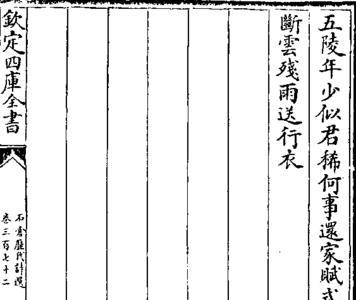 五陵年少似君稀何事還家賦式
斷雲殘雨送行衣
欽定四庫全書
石倉歷代詩選
卷三百七十二